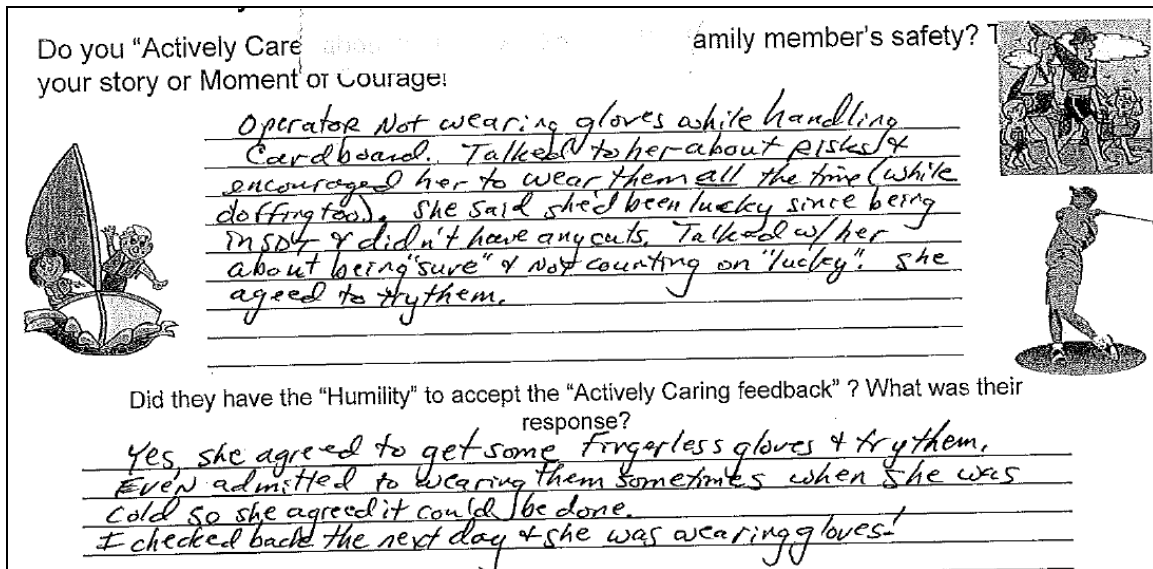 Do you "Actively Care amily member's safety? T
your story or Moment of Courage!
Operator Not wearing gloves while handling
Cardboard. Talked to her about risks &
encouraged her to wear them all the time (while
doffing too). She said she'd been lucky since being
in & didn't have any cuts. Talked w/ her
about being "sure" & Not counting on "lucky". She
ageed to try them.
Did they have the "Humility" to accept the "Actively Caring feedback" ? What was their
response?
Yes, she agreed to get some fingerless gloves & try them.
Even admitted to wearing them sometimes when she was
cold so she agreed it could be done.
I checked back the next day & she was wearing gloves!